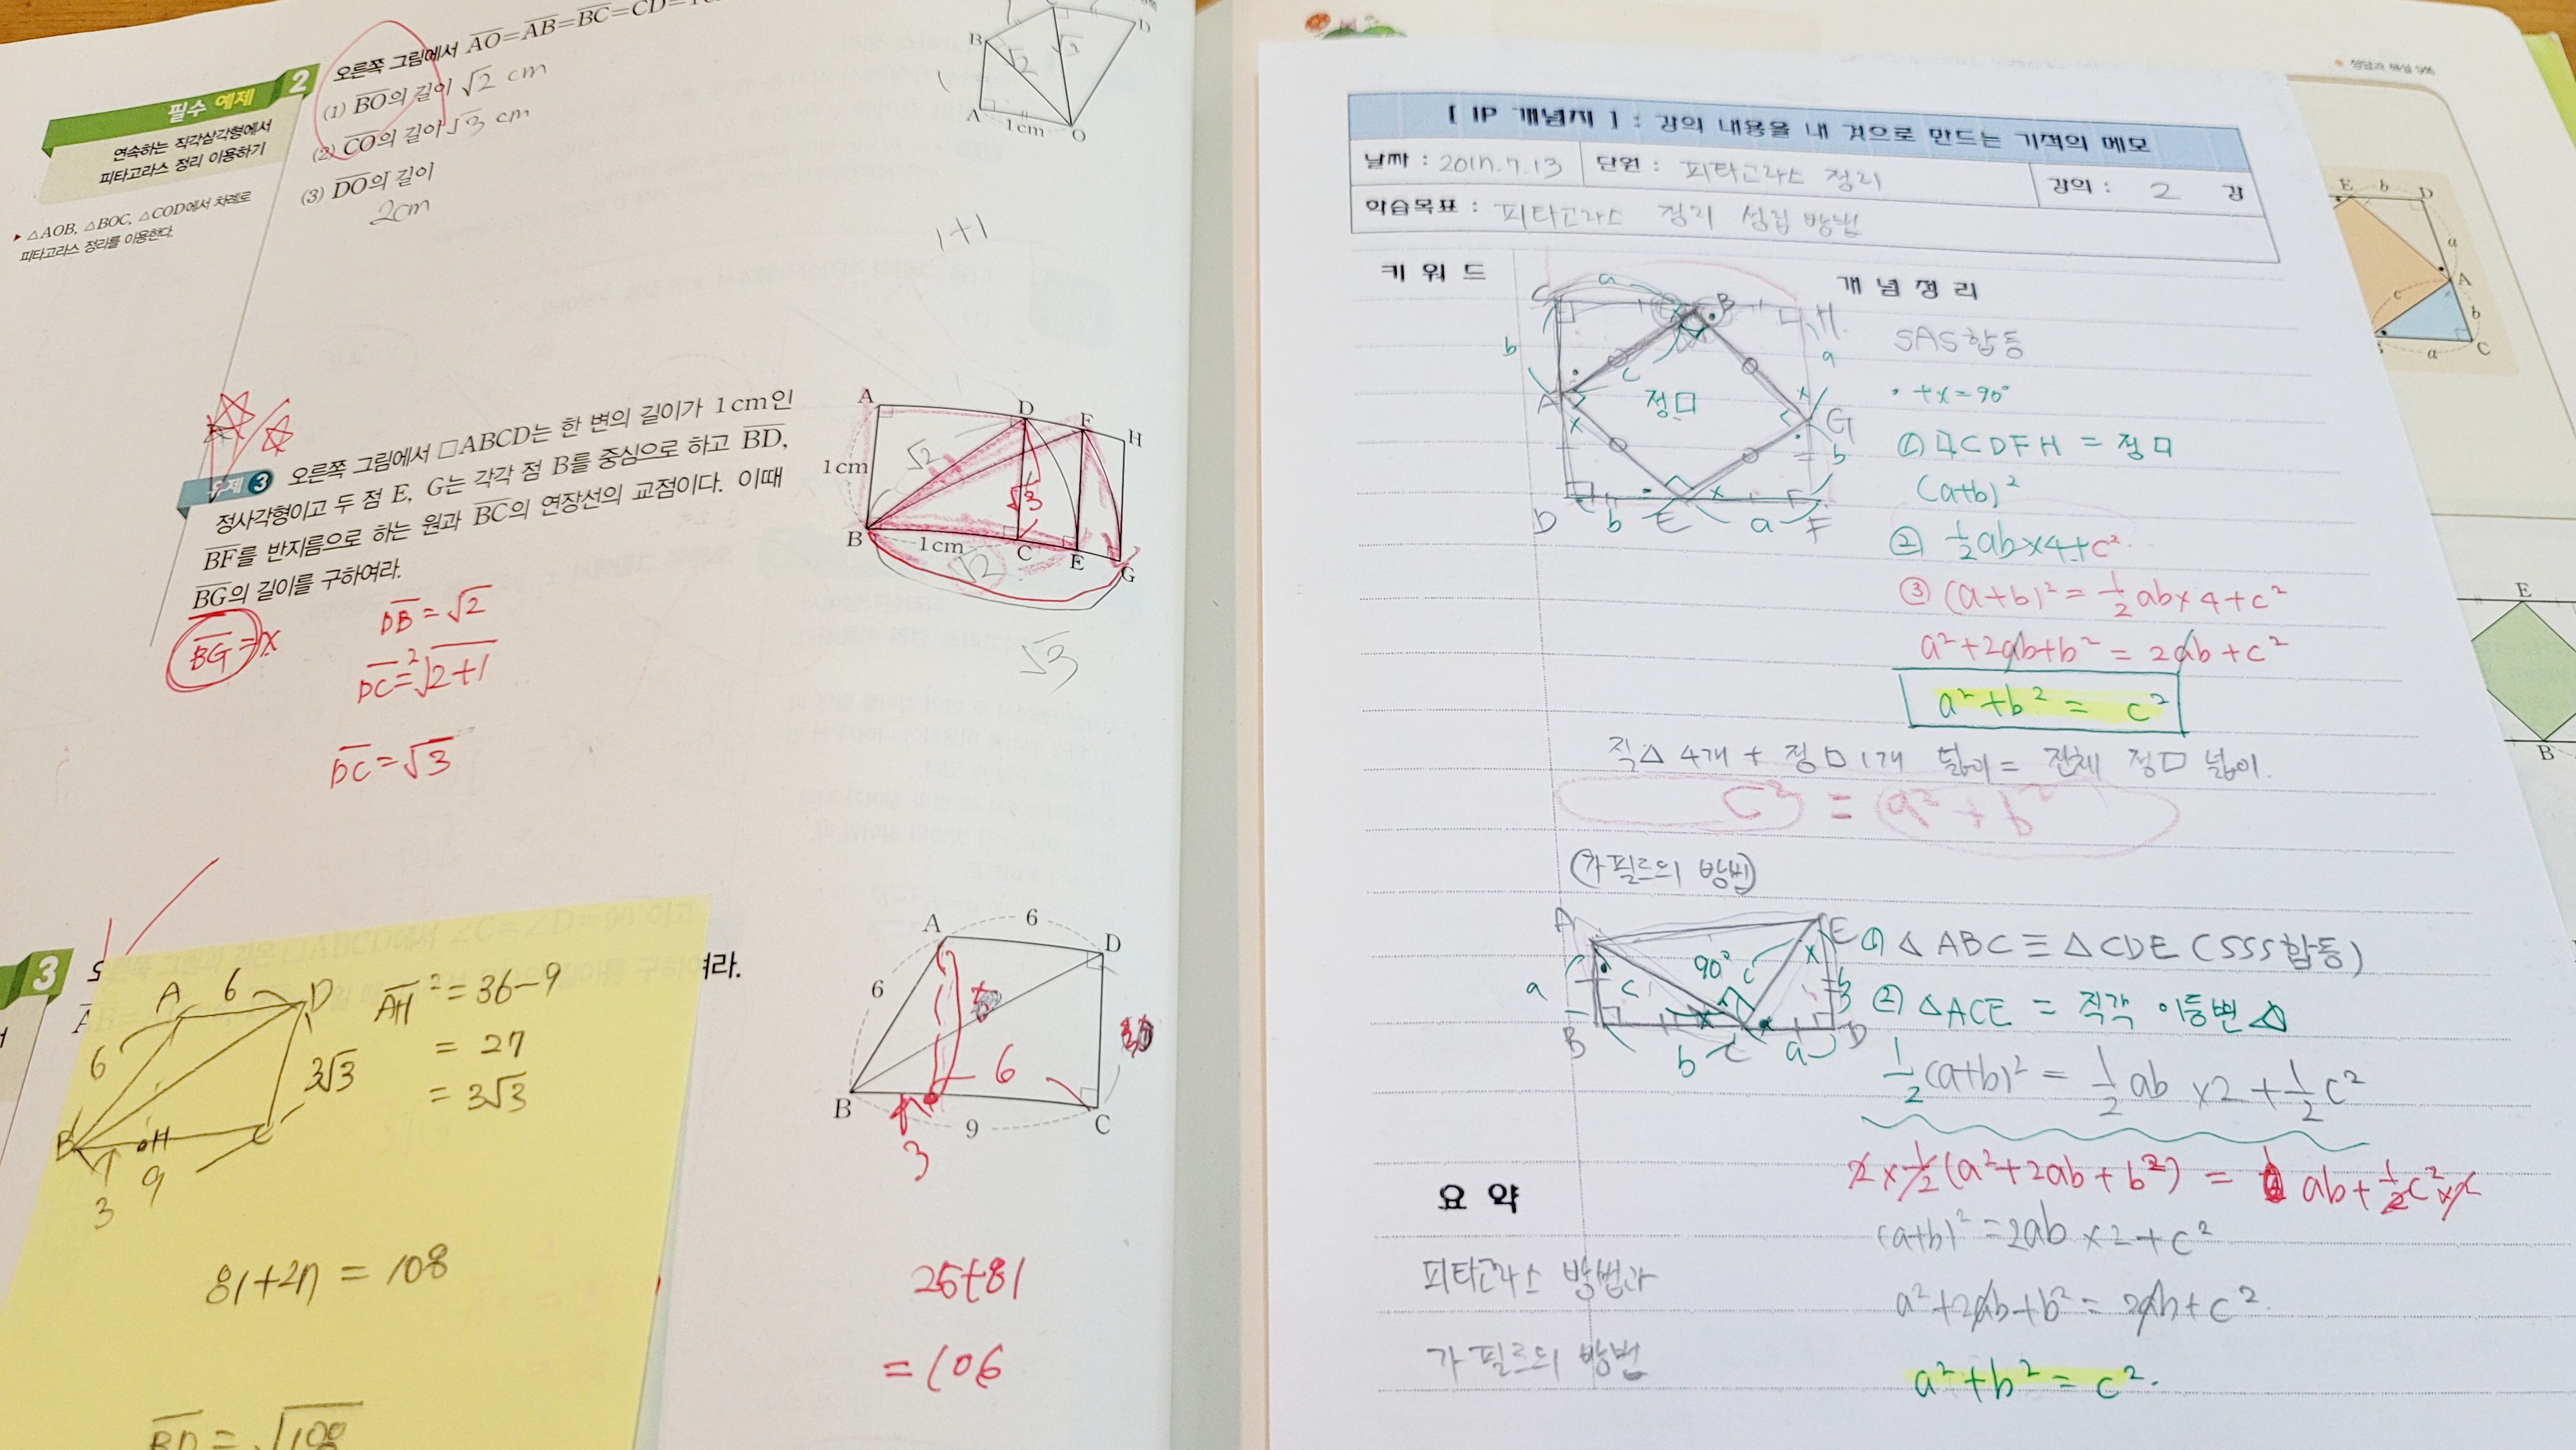 필수 예제 2
연속하는 직각삼각형에서
피타고라스 정리 이용하기
▸ △AOB, △BOC, △COD에서 차례로
피타고라스 정리를 이용한다.
오른쪽 그림에서 AO=AB=BC=CD=
(1) BO의 길이 √2 cm
(2) CO의 길이 √3 cm
(3) DO의 길이
2cm
B √2 √3 D
A 1cm O
1+1
3 오른쪽 그림에서 □ABCD는 한 변의 길이가 1cm인
정사각형이고 두 점 E, G는 각각 점 B를 중심으로 하고 BD,
BF를 반지름으로 하는 원과 BC의 연장선의 교점이다. 이때
BG의 길이를 구하여라.
BG=x
DB=√2
DC²=√2+1
DC=√3
A D F H
1cm √2 √3
B 1cm C E G
√2
√3
3
여라.
A 6 D
6 3√3
B H C
3 9
AH²=36-9
=27
=3√3
81+27=108
BD=√108
A 6 D
6
6
B 9 C
3
25+81
=106
정답과 해설 9쪽
[ IP 개념지 ] : 강의 내용을 내 것으로 만드는 기적의 메모
날짜 : 2017.7.13 단원 : 피타고라스 정리 강의 : 2 강
학습목표 : 피타고라스 정리 성립 방법
키워드 개념정리
C a B H
b c a
A 정□ G
b
D b E a F
SAS합동
• +x=90°
① □CDFH = 정□
(a+b)²
② ½ab×4+c²
③ (a+b)²=½ab×4+c²
a²+2ab+b²=2ab+c²
a²+b²=c²
직△ 4개 + 정□ 1개 넓이 = 전체 정□ 넓이.
c² = a²+b²
(가필드의 방법)
A E
a c 90° c b
B b C a D
① △ABC≡△CDE (SSS합동)
② △ACE = 직각 이등변△
½(a+b)²=½ab×2+½c²
2×½(a²+2ab+b²)= ab+½c²×2
(a+b)²=2ab×2+c²
a²+2ab+b²=2ab+c².
a²+b²=c².
요약
피타고라스 방법과
가필드의 방법
E b D
a
c A
b
a C
E
B